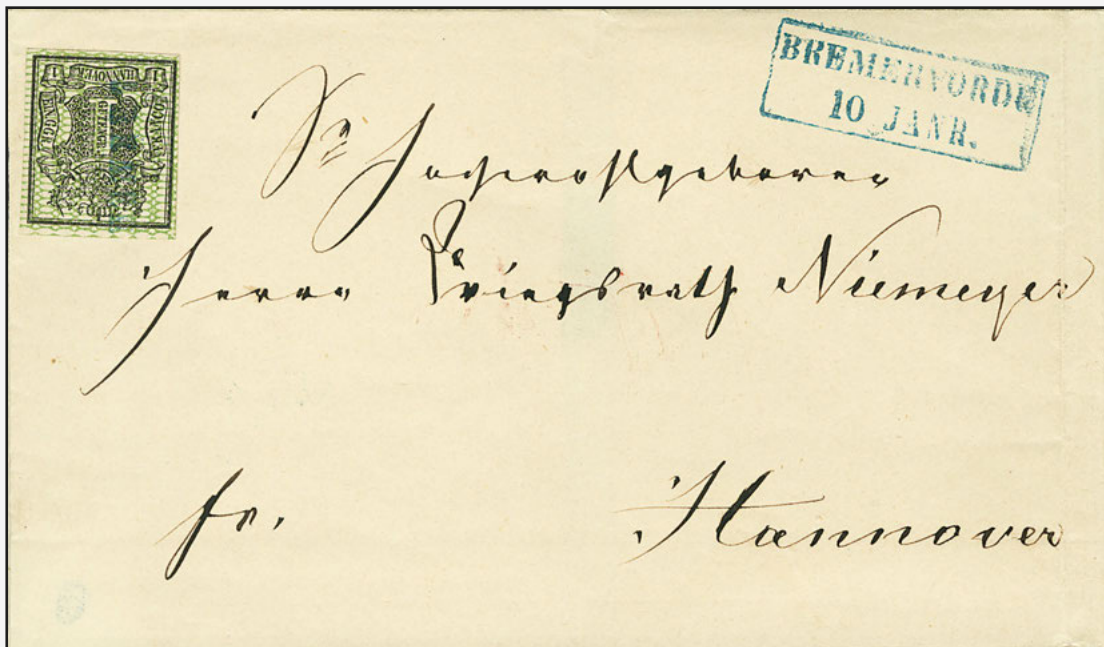 1 HANNOVER 1
BREMERVORDE
10 JANR.
Sr Hochwohlgeboren
Herrn Kriegsrath Niemeyer
fr. Hannover